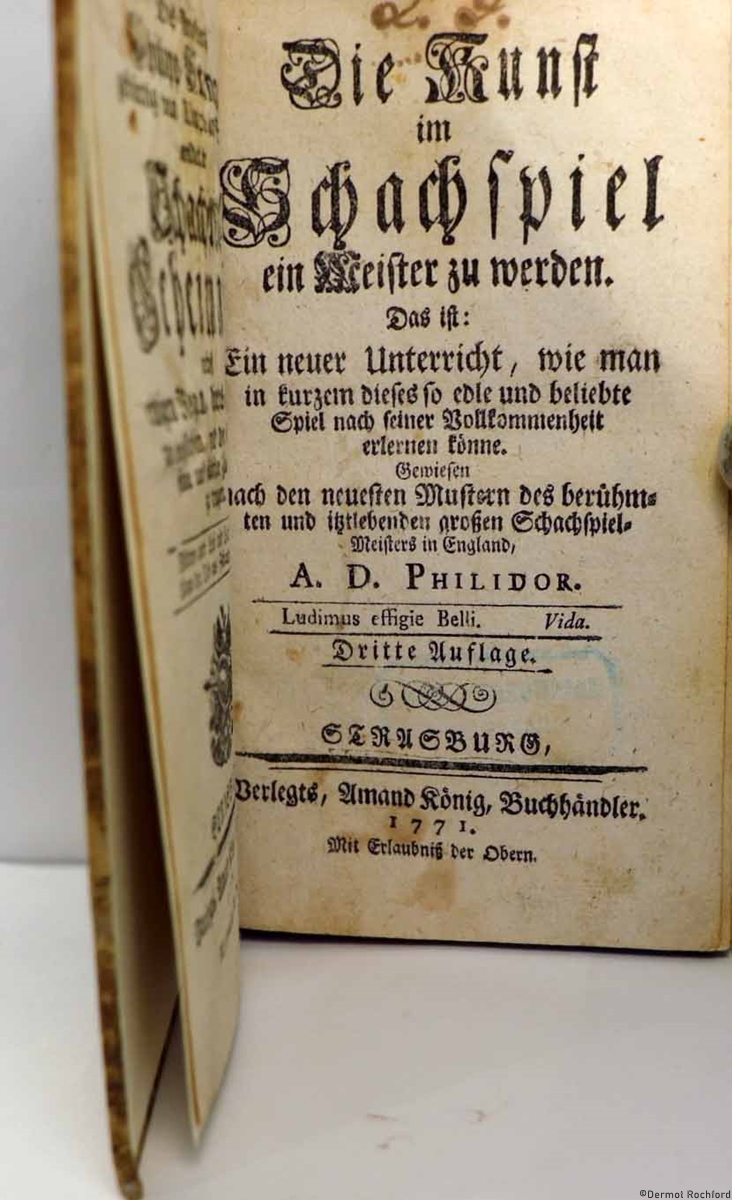 Die Kunst
im
Schachspiel
ein Meister zu werden.
Das ist:
Ein neuer Unterricht, wie man
in kurzem dieses so edle und beliebte
Spiel nach seiner Vollkommenheit
erlernen könne.
Gewiesen
nach den neuesten Mustern des berühm-
ten und itztlebenden großen Schachspiel-
Meisters in England,
A. D. PHILIDOR.
Ludimus effigie Belli. Vida.
Dritte Auflage.
STRASBURG,
Verlegts, Amand König, Buchhändler.
1771.
Mit Erlaubniß der Obern.
©Dermot Rochford